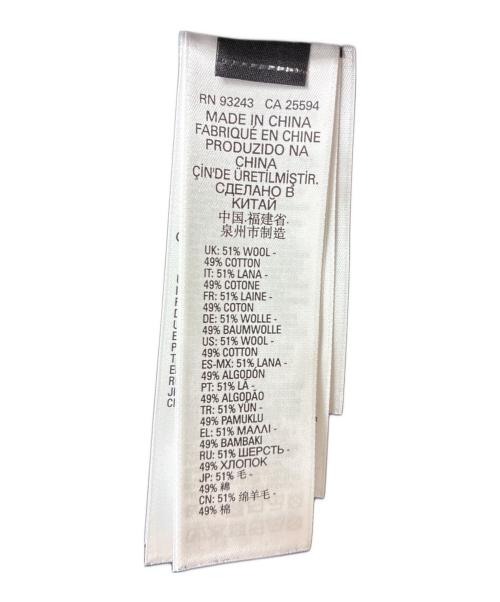 RN 93243 CA 25594
MADE IN CHINA
FABRIQUÉ EN CHINE
PRODUZIDO NA
CHINA
ÇİN'DE ÜRETİLMİŞTİR.
СДЕЛАНО В
КИТАЙ
中国.福建省.
泉州市制造
UK: 51% WOOL -
49% COTTON
IT: 51% LANA -
49% COTONE
FR: 51% LAINE -
49% COTON
DE: 51% WOLLE -
49% BAUMWOLLE
US: 51% WOOL -
49% COTTON
ES-MX: 51% LANA -
49% ALGODÓN
PT: 51% LÃ -
49% ALGODÃO
TR: 51% YÜN -
49% PAMUKLU
EL: 51% ΜΑΛΛΙ -
49% ΒΑΜΒΑΚΙ
RU: 51% ШЕРСТЬ -
49% ХЛОПОК
JP: 51% 毛 -
49% 綿
CN: 51% 绵羊毛 -
49% 棉